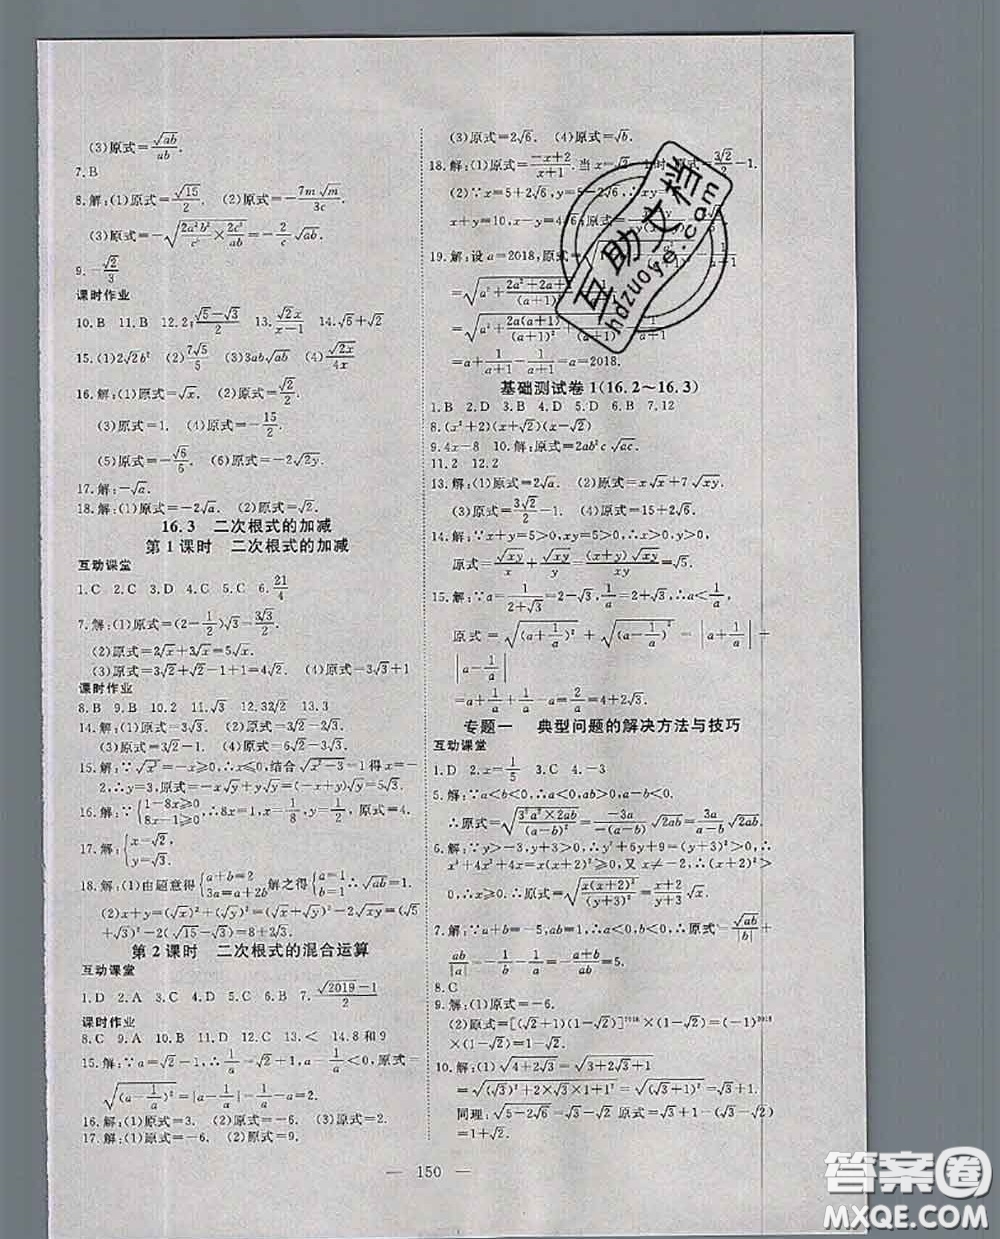 (3)原式=√ab/ab.
7.B
8.解:(1)原式=√15/2. (2)原式=-7m√m/3c.
(3)原式=-√(2a²b²/c³×2c³/ab)=-2/c√ab.
9.-√2/3
课时作业
10.B 11.B 12.2;(√5-√3)/2 13.√2x/(x-1) 14.√6+√2
15.(1)2√2b² (2)7√5/5 (3)3ab√ab (4)√2x/4x
16.解:(1)原式=√x. (2)原式=√2/2.
(3)原式=1. (4)原式=-15/2.
(5)原式=-√6/5. (6)原式=-2√2y.
17.解:-√a.
18.解:(1)原式=-2√a. (2)原式=√2.
16.3 二次根式的加减
第1课时 二次根式的加减
互动课堂
1.C 2.C 3.D 4.D 5.C 6.21/4
7.解:(1)原式=(2-1/2)√3=3√3/2.
(2)原式=2√x+3√x=5√x.
(3)原式=3√2+√2-1+1=4√2. (4)原式=3√3+1
课时作业
8.B 9.B 10.2 11.√3 12.3√2 13.3
14.解:(1)原式=3√2. (2)原式=3√2-2√3.
(3)原式=3√2-2√3. (4)原式=6√3-2√3.
16.解:∵{1-8x≥0 8x-1≥0 ∴8x=1,x=1/8,原式=1/4.
17.解:{x=√2, y=√3.
18.解:(1)由题意得{a+b=2 3a=a+2b 解之得{a=1 b=1 ∴√ab=1.
(2)x+y=(√x)²+(√y)²=(√x+√y)²-2√xy=(√5
+√3)²-2(√15-√3)=8+2√3.
第2课时 二次根式的混合运算
互动课堂
1.D 2.A 3.C 4.D 5.C 6.B 7.(√2019-1)/2
课时作业
8.C 9.A 10.B 11.D 12.C 13.< 14.8和9
15.解:∵a=√2-1,∴1/a=√2+1,a-1/a<0,原式=
√(a-1/a)²=|a-1/a|=1/a-a=2.
16.解:(1)原式=1. (2)原式=3.
17.解:(1)原式=-6. (2)原式=9.
(3)原式=2√6. (4)原式=√b.
18.解:(1)原式=(-x+2)/(x+1).当x=√2-1时,原式=3√2/2-1.
19.解:设a=2018,原式=
=a+1/(a+1)-1/(a+1)=a=2018.
基础测试卷1(16.2~16.3)
1.B 2.D 3.B 4.D 5.D 6.B 7.12
8.(x²+2)(x+√2)(x-√2)
9.4x-8 10.解:原式=2ab²c√ac.
11.2 12.2
13.解:(1)原式=2√5. (2)原式=x√x+7√xy.
(3)原式=3√2/2-1. (4)原式=15+2√5.
14.解:∵x+y=5>0,xy=5>0,∴x>0,y>0,
原式=√xy/x+√xy/y=(x+y)√xy/xy=√5.
15.解:∵a=1/(2+√3)=2-√3,1/a=2+√3,∴a<1/a,
原式=√(a+1/a)²+√(a-1/a)²=|a+1/a|+
|a-1/a|
=a+1/a+1/a-a=2/a=4+2√3.
专题一 典型问题的解决方法与技巧
互动课堂
1.D 2.x=1/5 3.C 4.-3
5.解:∵a<b<0,∴a<0,a-b<0.
∴原式=√(3²a²×2ab/(a-b)²)=-3a/-(a-b)√2ab=3a/(a-b)√2ab.
6.解:∵y>-3,y+3>0,∴y²+6y+9=(y+3)²>0,∴
x³+4x²+4x=x(x+2)²≥0,又x≠-2,∴(x+2)²>
0,∴x≥0.∴原式=√(x(x+2)²/(y+3)²)=(x+2)/(y+3)√x.
7.解:∵a+b=-5,ab=1>0,∴a<0,b<0,∴原式=√ab/|b|+
√ab/|a|=-1/b-1/a=-(a+b)/ab=5.
8.C
9.解:(1)原式=-6.
(2)原式=[(√2+1)(1-√2)]²⁰¹⁸×(1-√2)=(-1)²⁰¹⁸
×(1-√2)=1-√2.
10.解:(1)√(4+2√3)=√(3+2√3+1)
=√((√3)²+2×√3×1+1²)=√(√3+1)²=√3+1.
同理:√(5-2√6)=√3-√2 原式=√3+1-√3+√2
=1+√2.
— 150 —
互助文档
hdzuoye.com
答案圈
MXQE.COM